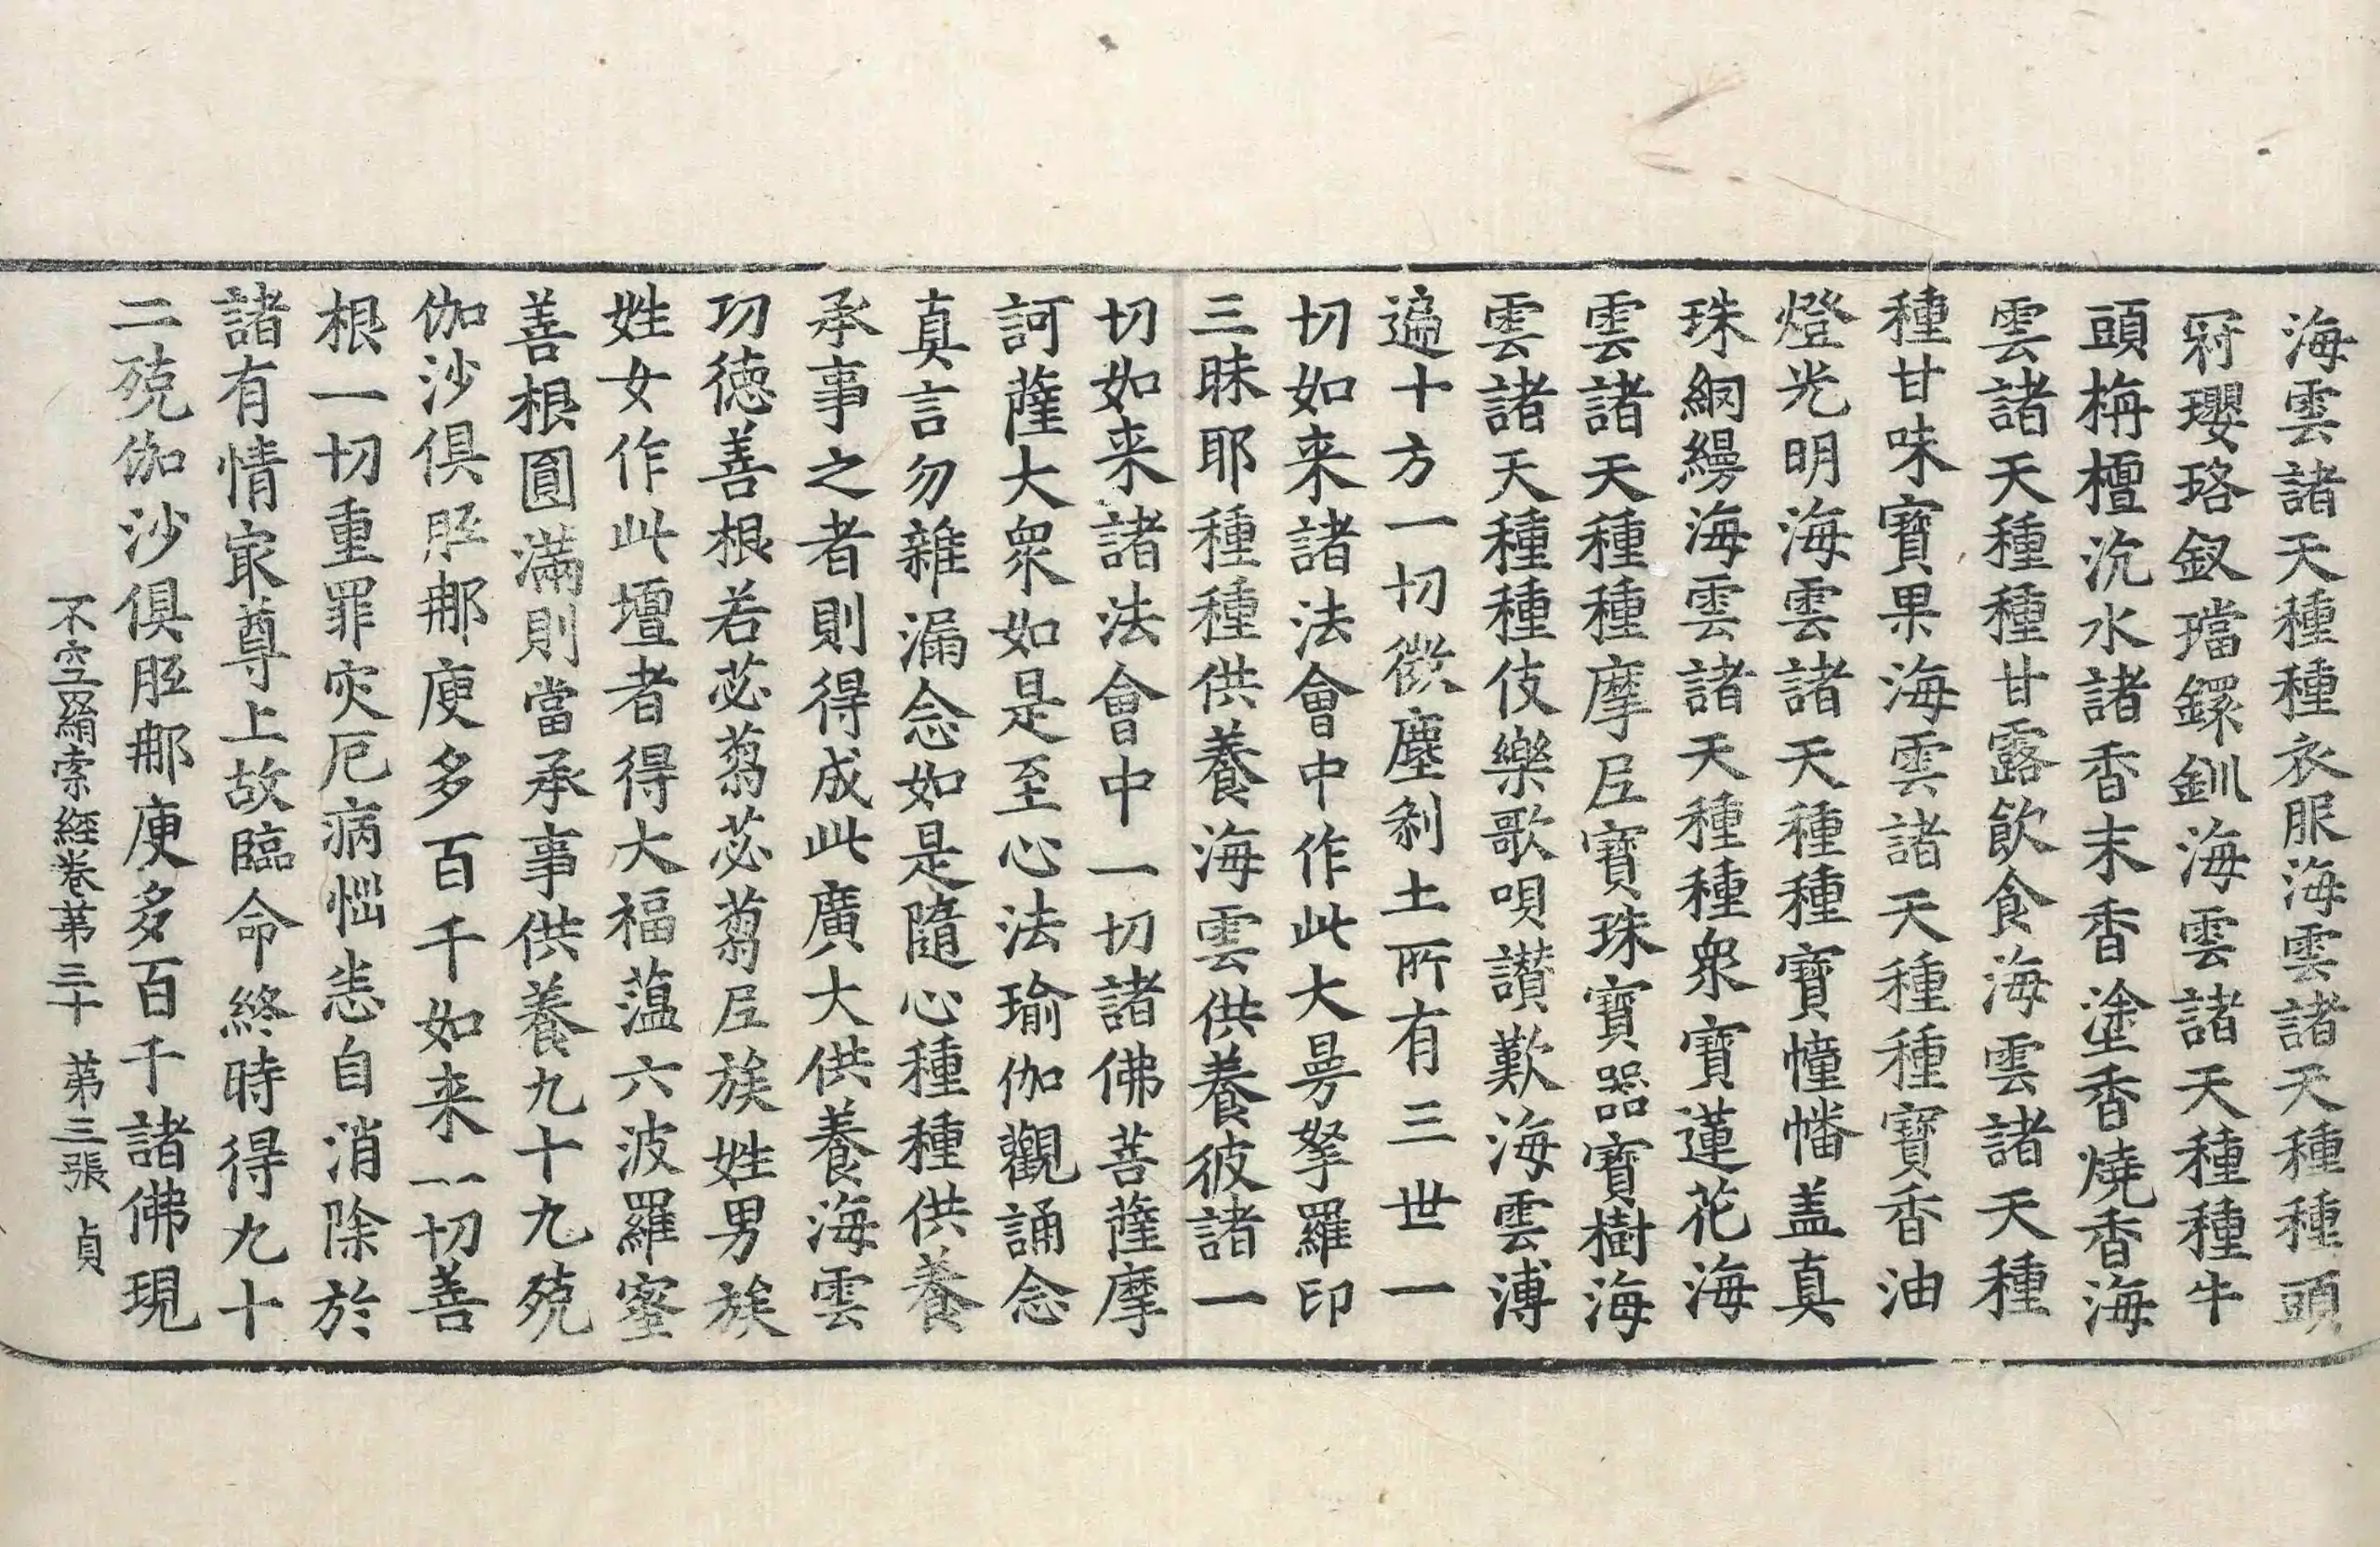 海雲諸天種種衣服海雲諸天種種頭
冠瓔珞釵璫鐶釧海雲諸天種種牛
頭栴檀沉水諸香末香塗香燒香海
雲諸天種種甘露飲食海雲諸天種
種甘味寶果海雲諸天種種寶香油
燈光明海雲諸天種種寶幢幡盖真
珠網縵海雲諸天種種衆寶蓮花海
雲諸天種種摩尼寶珠寶器寶樹海
雲諸天種種伎樂歌唄讃歎海雲溥
遍十方一切微塵剎土所有三世一
切如来諸法會中作此大曼拏羅印
三昧耶種種供養海雲供養彼諸一
切如来諸法會中一切諸佛菩薩摩
訶薩大衆如是至心法瑜伽觀誦念
真言勿雜漏念如是隨心種種供養
承事之者則得成此廣大供養海雲
功德善根若苾蒭苾蒭尼族姓男族
姓女作此壇者得大福蘊六波羅蜜
善根圓滿則當承事供養九十九殑
伽沙俱胝那庾多百千如来一切善
根一切重罪灾厄病惱恙自消除於
諸有情㝡尊上故臨命終時得九十
二殑伽沙俱胝那庾多百千諸佛現
不空羂索經卷第三十 第三張 貞